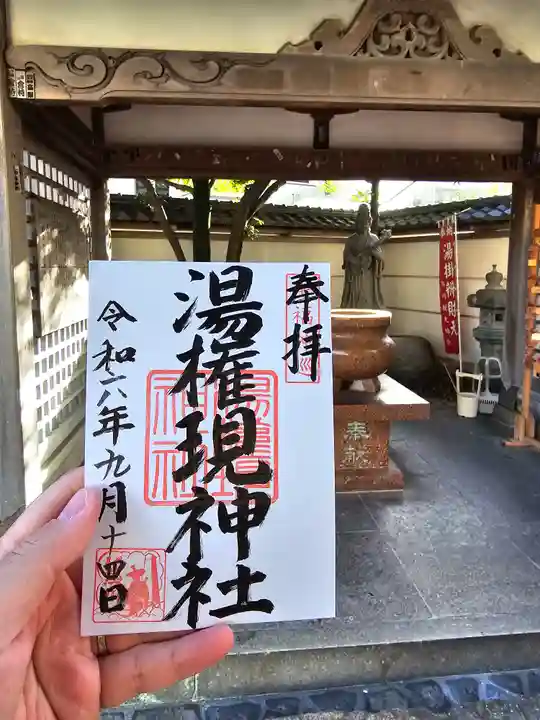 奉拝
湯権現神社
令和六年九月十四日
湯掛辨財天
奉献